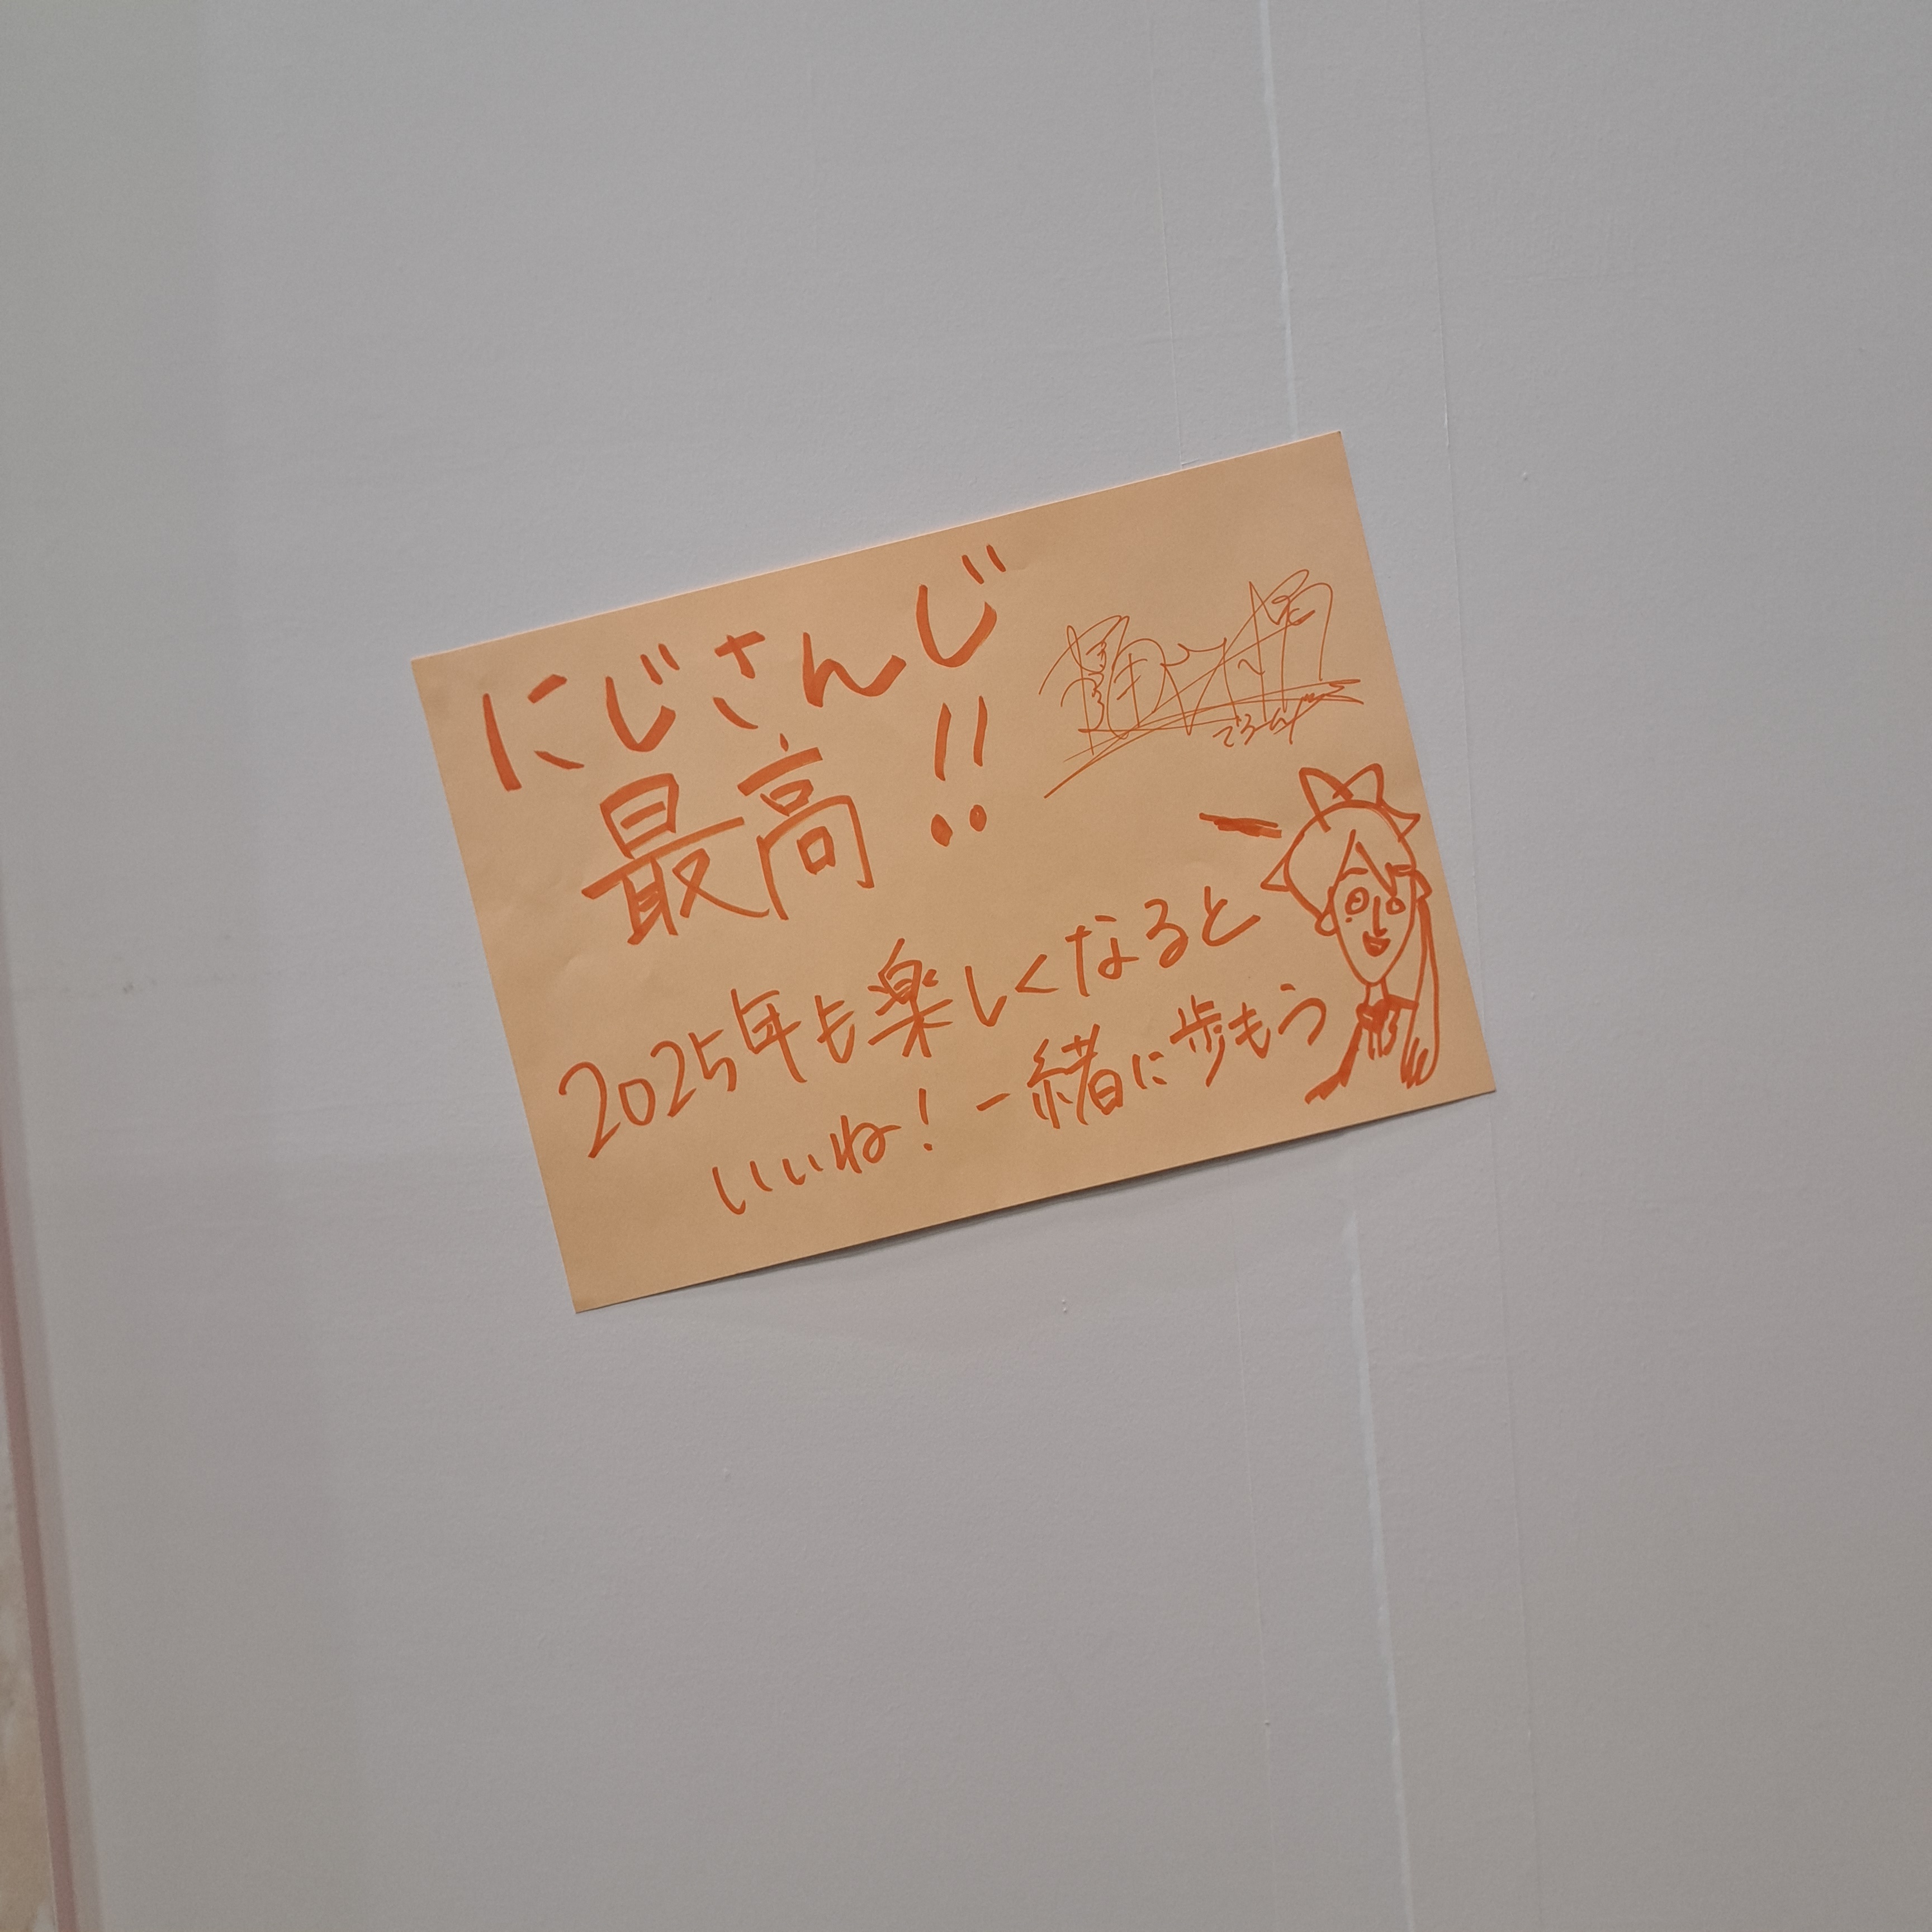 にじさんじ
最高!!
2025年も楽しくなると
いいね!一緒に歩もう